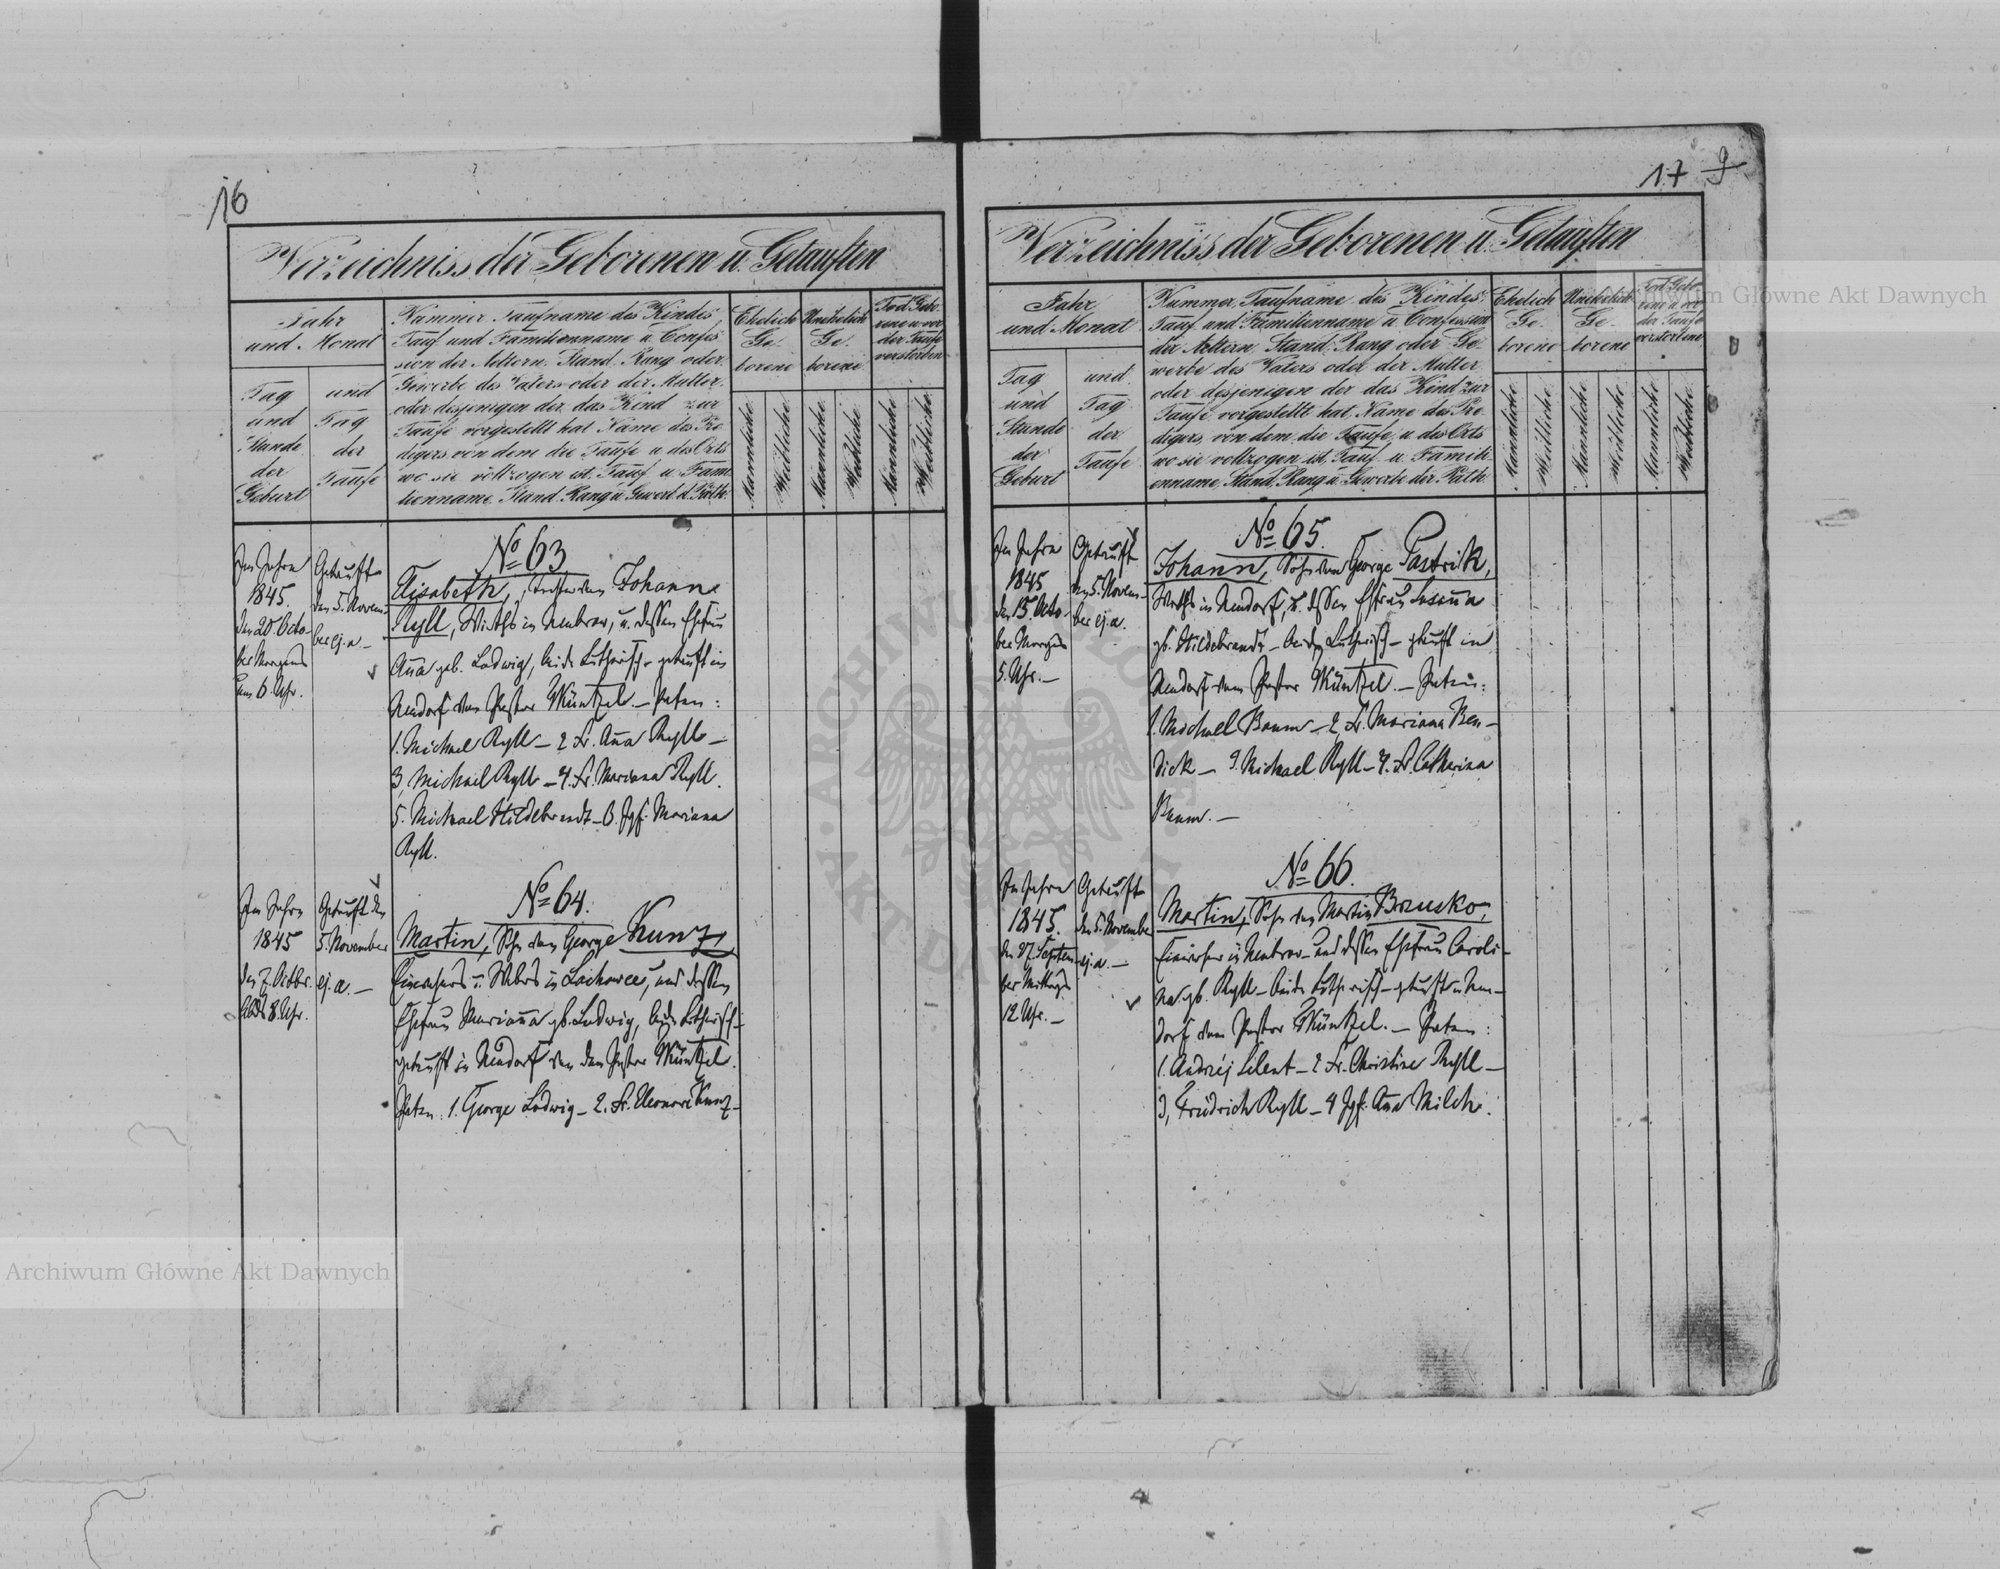 16
Verzeichniss der Geborenen u. Getauften
Jahr
und Monat
Tag
und
Stunde
der
Geburt
und
Tag
der
Taufe
Nummer Taufname des Kindes
Tauf und Familienname u Confes
sion der Aeltern, Stand, Rang oder
Gewerbe des Vaters oder der Mutter
oder desjenigen der das Kind zur
Taufe vorgestellt hat Name des Pre
digers von dem die Taufe u des Orts
wo sie vollzogen ist, Tauf u Fami
lienname, Stand, Rang u Gewerb d. Path
Ehelich
Ge
borene
Unehelich
Ge
borene
Tod Gebo
rene u vor
der Taufe
verstorben
Männliche
Weibliche
Männliche
Weibliche
Männliche
Weibliche
Im Jahre
1845.
den 20 Octo-
ber Morgens
um 6. Uhr.
Getauft
den 5. Novem-
ber ej. a. –
No 63
Elisabeth, Tochter von Johann
Ryll, Wirths in Neubrow, u. dessen Ehefrau
Anna geb. Ludwig, beide Lutherisch – getauft in
Neudorf vom Pastor Müntzel. – Paten:
1. Michael Ryll – 2 Fr. Anna Ryll –
3, Michael Ryll – 4. Fr. Mariana Ryll.
5. Michael Hildebrandt – 6. Jgf. Mariana
Ryll.
Im Jahre
1845
den 7. Octbr.
Abds 8. Uhr.
Getauft den
5. November
ej. a. –
No 64.
Martin, Sohn von George Kunz,
Einwohners u. Webers in Lachowce, und dessen
Ehefrau Marianna gb. Ludwig, beide Lutherisch –
getauft in Neudorf von dem Pastor Müntzel.
Paten: 1. George Ludwig – 2. Fr. Eleonore Kunz –
17 9
Verzeichniss der Geborenen u. Getauften
Jahr
und Monat
Tag
und
Stunde
der
Geburt
und
Tag
der
Taufe
Nummer, Taufname des Kindes
Tauf und Familienname u Confession
der Aeltern, Stand, Rang oder Ge
werbe des Vaters oder der Mutter
oder desjenigen der das Kind zur
Taufe vorgestellt hat, Name des Pre
digers, von dem die Taufe, u des Orts
wo sie vollzogen ist, Tauf u. Famili
enname, Stand, Rang u Gewerbe der Path
Ehelich
Ge
borene
Unehelich
Ge
borene
Tod Gebo
rene u vor
der Taufe
verstorbene
Männliche
Weibliche
Männliche
Weibliche
Männliche
Weibliche
Im Jahre
1845
den 15. Octo-
ber Morgens
5. Uhr. –
Getauft
den 5. Novem-
ber ej. a.
No 65.
Johann, Sohn von George Pastrik,
Wirths in Neudorf, u. dessen Ehefrau Susanna
gb. Hildebrandt – beide Lutherisch – getauft in
Neudorf vom Pastor Müntzel. – Paten:
1. Michael Baum – 2, Fr. Mariana Ben-
dick – 3. Michael Ryll – 4. Fr. Catharina
Baum. –
Im Jahre
1845.
den 27. Septem-
ber Mittags
12 Uhr. –
Getauft
den 5. Novembe
ej. a. –
No 66.
Martin, Sohn von Martin Bruzko,
Einwohner in Neubrow – und dessen Ehefrau Caroli-
na gb. Ryll – beide Lutherisch – getauft in Neu-
dorf vom Pastor Müntzel. – Paten:
1. Andrzej Selent – 2 Fr. Christine Ryll –
3, Friedrich Ryll – 4 Jgf. Anna Milch.
Archiwum Główne Akt Dawnych
Archiwum Główne Akt Dawnych